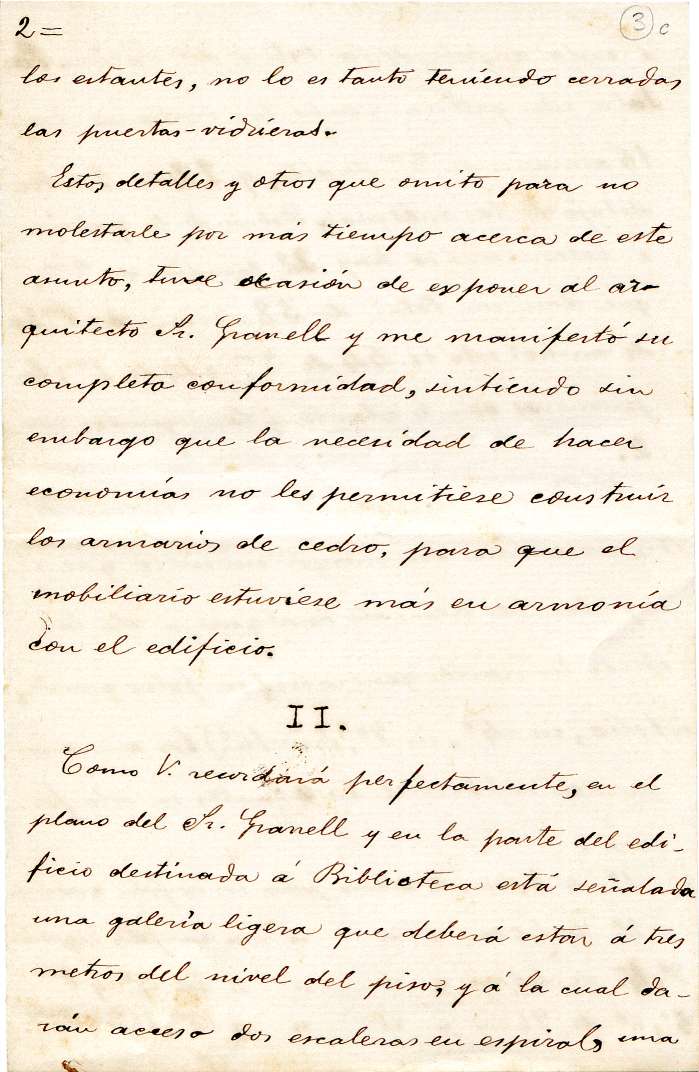 2=
3 c
los estantes, no lo es tanto teniendo cerradas
las puertas-vidrieras.
Estos detalles y otros que omito para no
molestarle por más tiempo acerca de este
asunto, tuve ocasión de exponer al ar-
quitecto Sr. Granell y me manifestó su
completa conformidad, sintiendo sin
embargo que la necesidad de hacer
economías no les permitiese construir
los armarios de cedro, para que el
mobiliario estuviese más en armonía
con el edificio.
II.
Como V. recordará perfectamente, en el
plano del Sr. Granell y en la parte del edi-
ficio destinada á Biblioteca está señalada
una galería ligera que deberá estar á tres
metros del nivel del piso, y á la cual da-
rán acceso dos escaleras en espiral, una